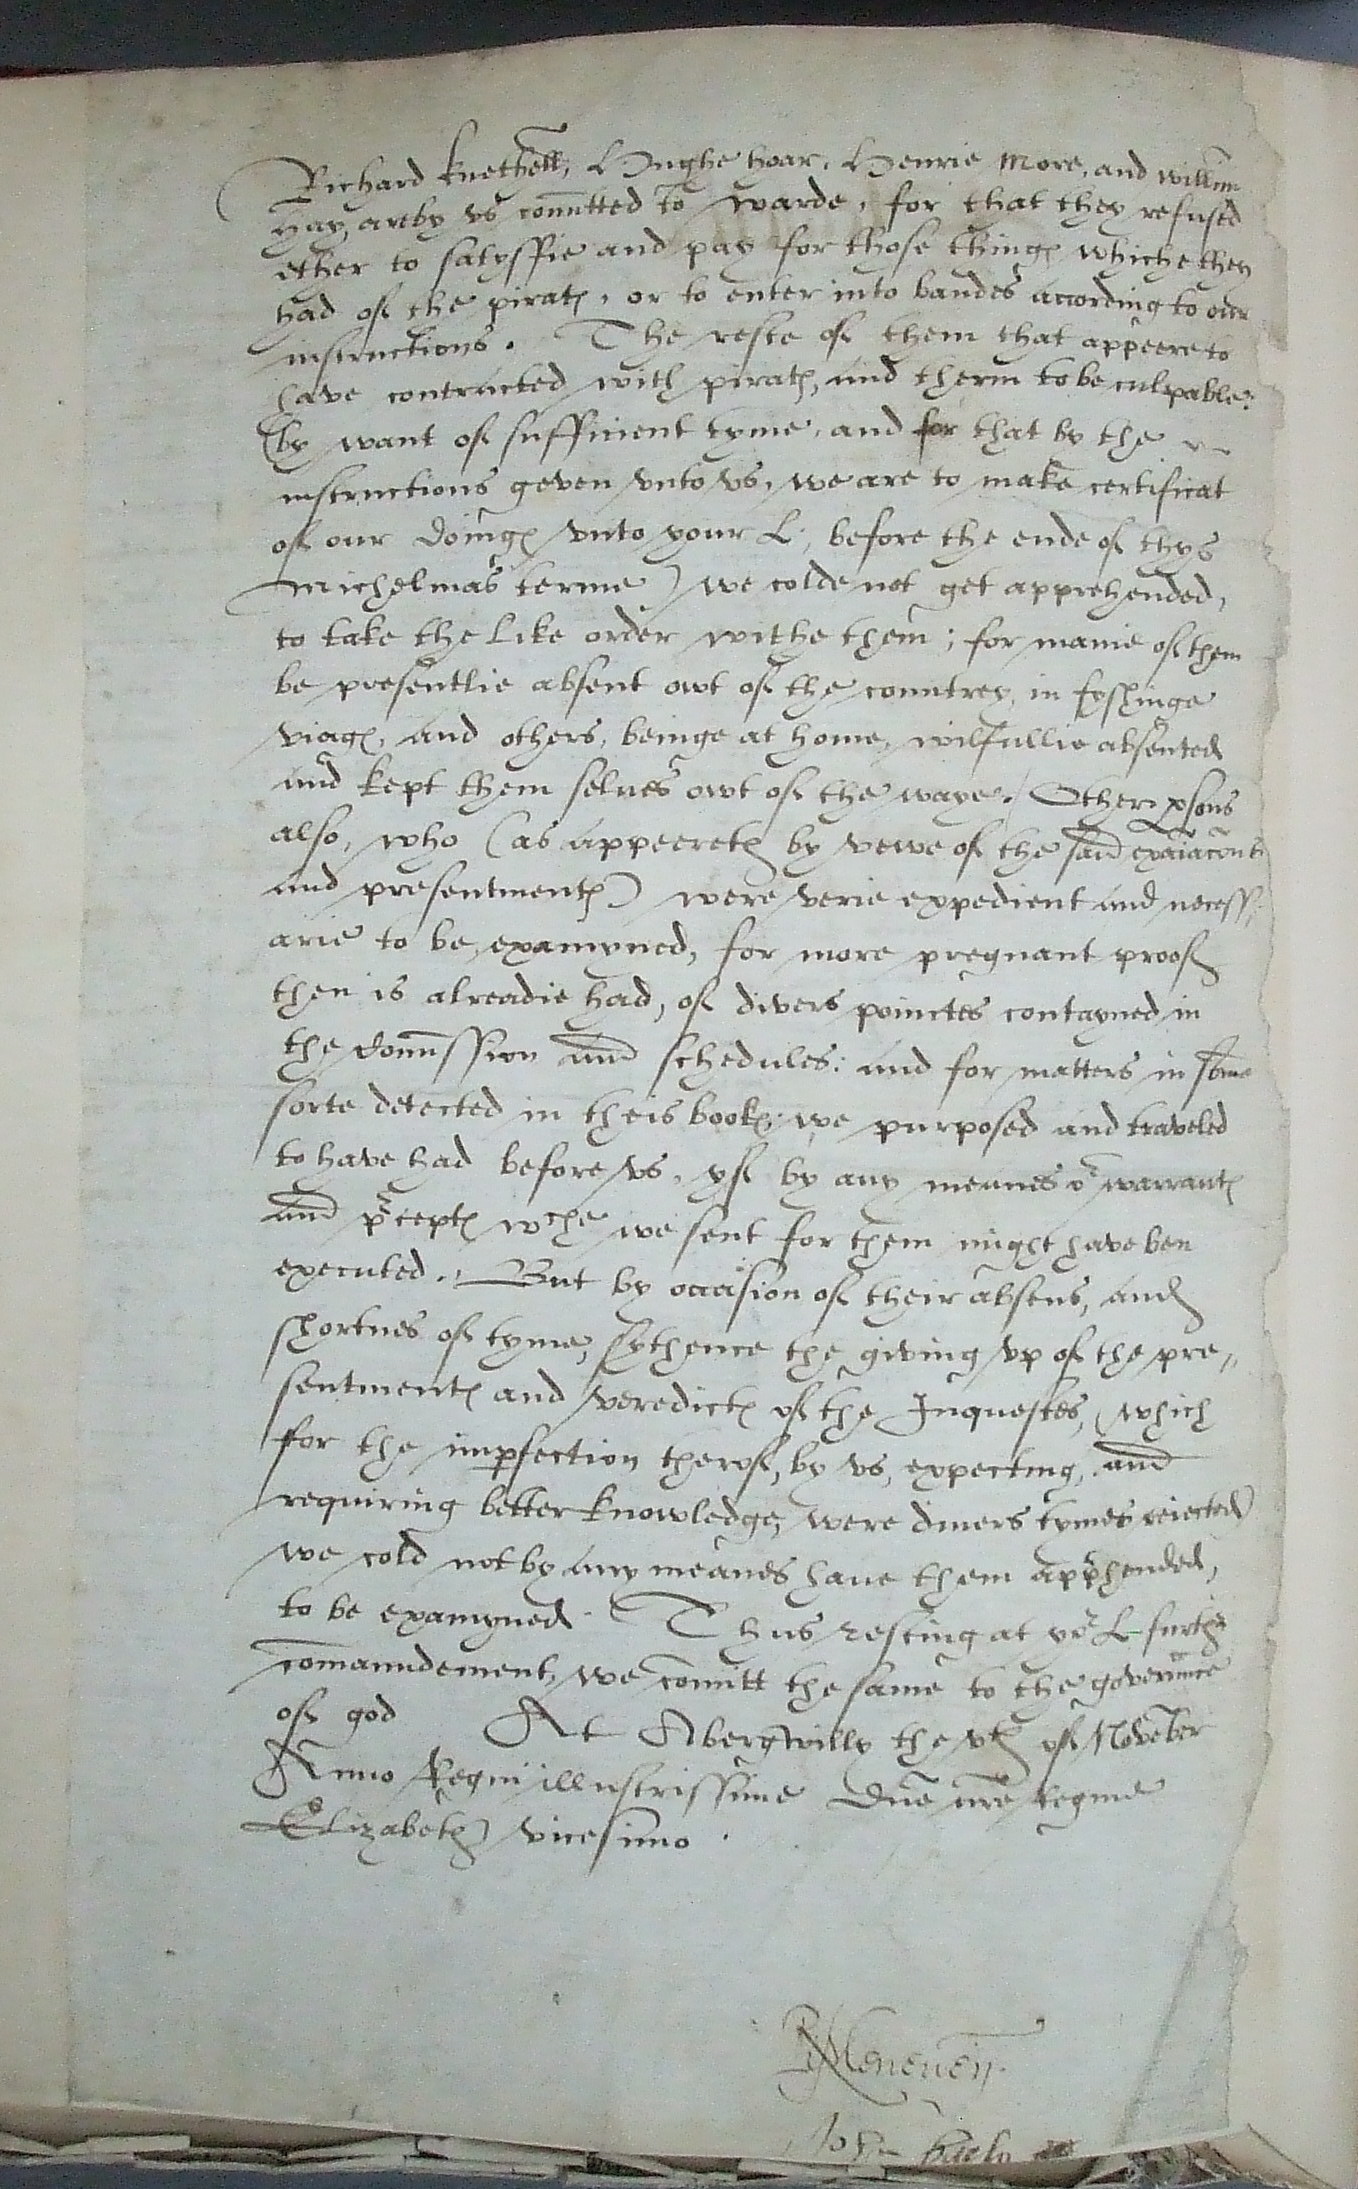 Richard knethell, Hughe hoar, Henrie More, and willm
hay, are by vs comitted to warde, for that they refused
ether to satysffie and pay for those things whiche they
had of the pirats, or to enter into bandes according to our
instructions. The reste of them that appeere to
have contracted with pirats, and therin to be culpable:
(by want of sufficient tyme, and for that by the
instructions geven vnto vs, we are to make certificat
of our doings vnto your L; before the ende of thys
Michelmas terme) we colde not get apprehended,
to take the like order withe them; for manie of them
be presentlie absent owt of the countrey, in fyshinge
viags, and others, beinge at home, wilfullie absented
and kept them selues owt of the waye. Other psons
also, who (as appeereth by vewe of the said
and presentments) were verie expedient and necess,
arie to be examyned, for more pregnant proof
then is alreadie had, of divers pointes contayned in
the comission and schedules: and for matters in some
sorte detected in theis books; we purposed and traveled
to have had before vs, yf by any meanes or warrants
and pcepts wche we sent for them might have ben
executed. But by occasion of their absens, and
shortnes of tyme, sythence the giving vp of the pre,,
sentments and veredicts of the Inquestes, (which
for the impfection therof, by vs, expecting, and
requiring better knowledge, were diuers tymes reiected)
we cold not by any meanes haue them apphended,
to be examyned. Thus resting at yor L furth
comaundement, we comitt the same to the governnce
of god At Abergwilly the vth of November
Anno Regni illustrissime Dne nre regine
Elizabeth vicesimo.
R Meneven.
John